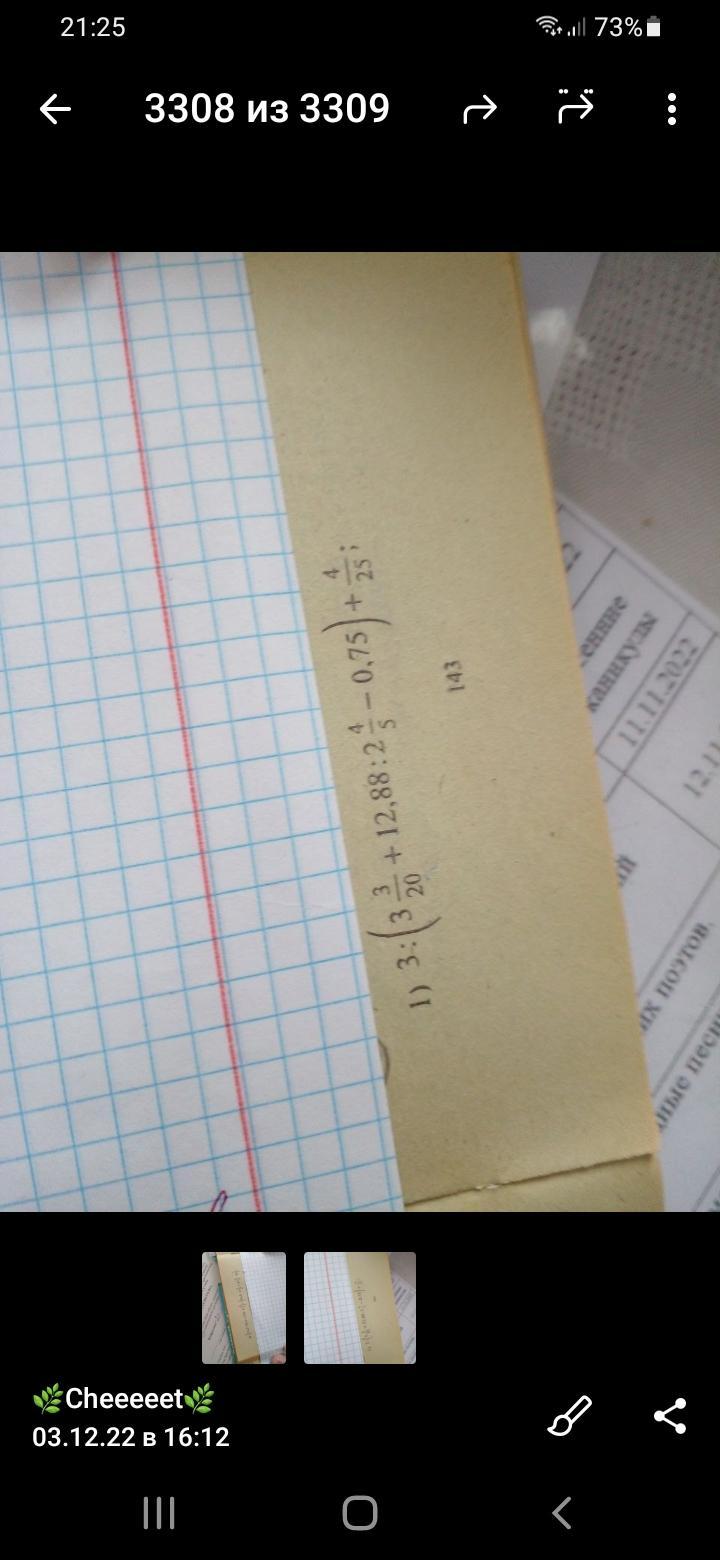 21:25 73%
3308 из 3309
1) 3:(3 3/20 + 12,88:2 4/5 − 0,75) + 4/25;
143
каникулы
11.11.2022
12.11
их поэтов.
🌿Cheeeeet🌿
03.12.22 в 16:12